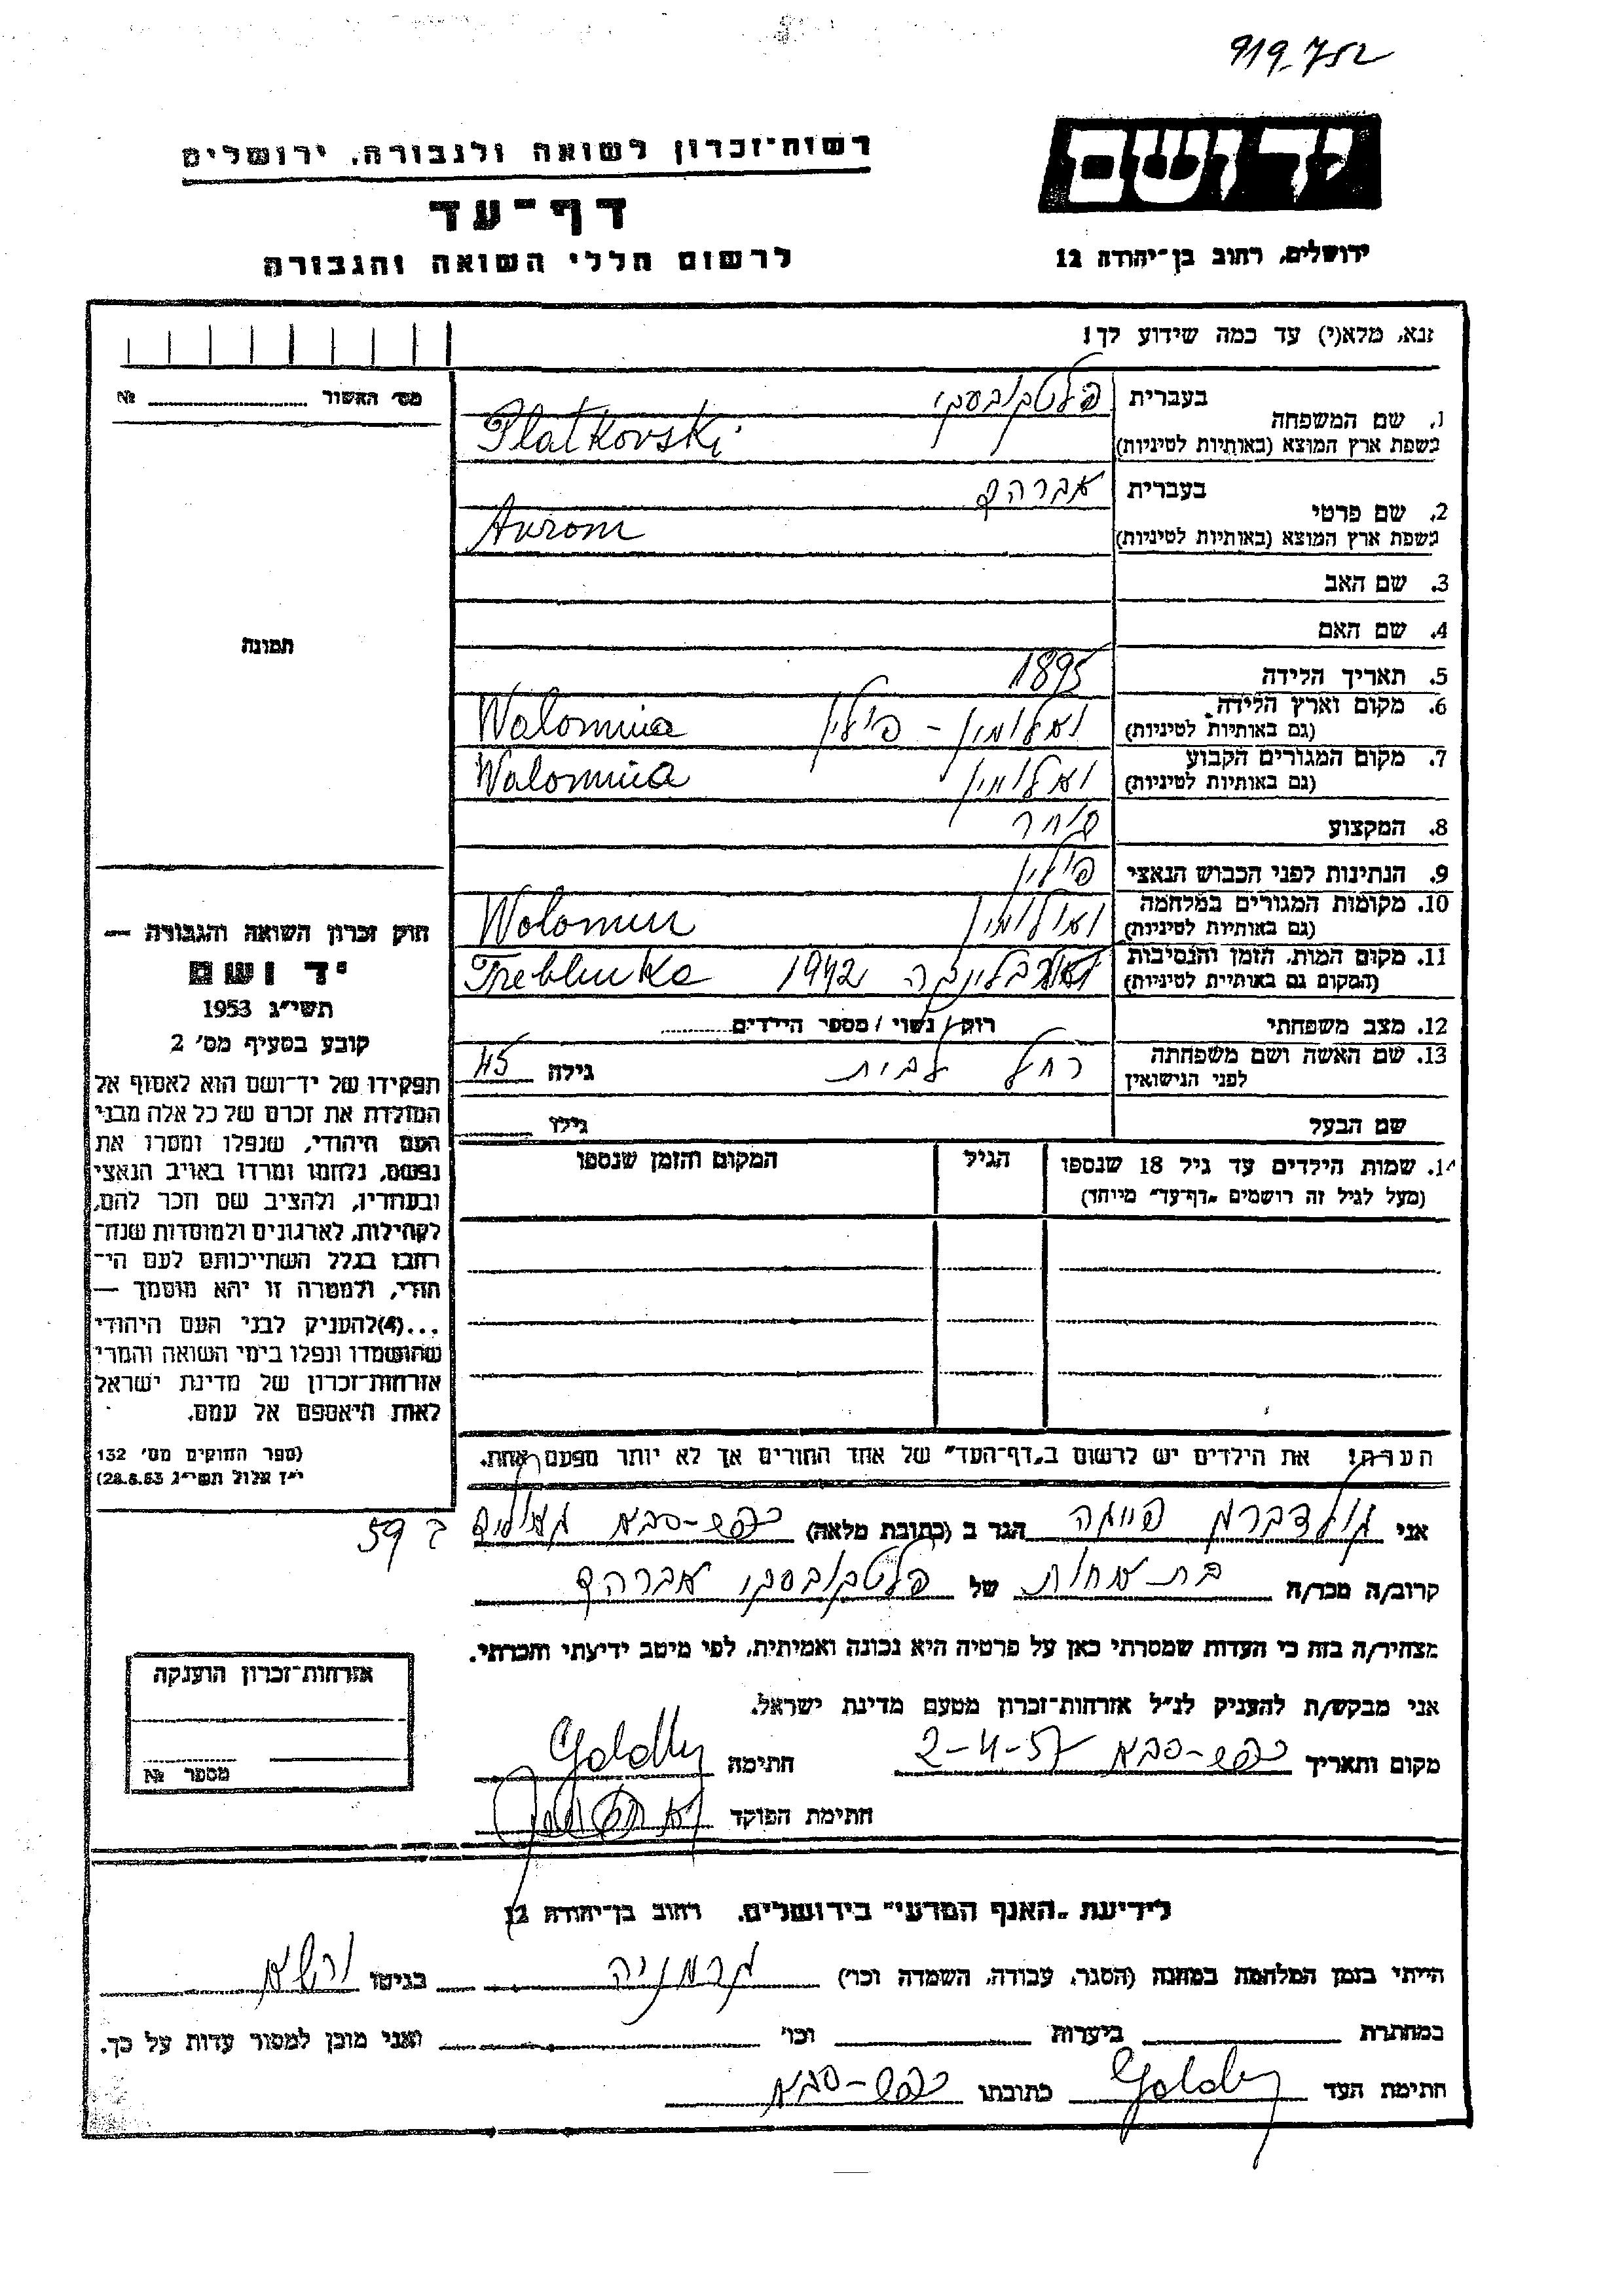 919.752
יד ושם
ירושלים, רחוב בן־יהודה 12
רשות־זכרון לשואה ולגבורה, ירושלים
דף־עד
לרשום חללי השואה והגבורה
נא, מלא(י) עד כמה שידוע לך!
מס' האשור №
תמונה
1. שם המשפחה בעברית פלטקובסקי
בשפת ארץ המוצא (באותיות לטיניות) Platkovski
2. שם פרטי בעברית אברהם
בשפת ארץ המוצא (באותיות לטיניות) Avrom
3. שם האב
4. שם האם
5. תאריך הלידה 1895
6. מקום וארץ הלידה
(גם באותיות לטיניות) וואלומין - פולין Wolomina
7. מקום המגורים הקבוע
(גם באותיות לטיניות) וואלומין Wolomina
8. המקצוע סוחר
9. הנתינות לפני הכבוש הנאצי פולין
10. מקומות המגורים במלחמה
(גם באותיות לטיניות) וואלומין Wolomin
11. מקום המות, הזמן והנסיבות
(המקום גם באותיות לטיניות) טרבלינקה 1942 Treblinka
12. מצב משפחתי רוק / נשוי / מספר הילדים
13. שם האשה ושם משפחתה
לפני הנישואין רחל גילה 45
שם הבעל גילו
14. שמות הילדים עד גיל 18 שנספו
(מעל לגיל זה רושמים "דף־עד" מיוחד)
הגיל
המקום והזמן שנספו
הערה: את הילדים יש לרשום ב"דף־העד" של אחד ההורים אך לא יותר מפעם אחת.
חוק זכרון השואה והגבורה —
יד ושם
תשי"ג 1953
קובע בסעיף מס' 2
תפקידו של יד־ושם הוא לאסוף אל
המולדת את זכרם של כל אלה מבני
העם היהודי, שנפלו ומסרו את
נפשם, נלחמו ומרדו באויב הנאצי
ובעוזריו, ולהציב שם וזכר להם,
לקהילות, לארגונים ולמוסדות שנח־
רבו בגלל השתייכותם לעם הי־
הודי, ולמטרה זו יהא מוסמך —
...(4)להעניק לבני העם היהודי
שהושמדו ונפלו בימי השואה והמרי
אזרחות־זכרון של מדינת ישראל
לאות היאספם אל עמם.
(ספר החוקים מס' 132
י"ז אלול תשי"ג 28.8.53)
אני גולדברג הגר ב (כתובת מלאה) כפר-סבא 59
קרוב/ה מכר/ה בת אחות של פלטקובסקי אברהם
מצהיר/ה בזה כי העדות שמסרתי כאן על פרטיה היא נכונה ואמיתית, לפי מיטב ידיעתי והכרתי.
אני מבקש/ת להעניק לנ"ל אזרחות־זכרון מטעם מדינת ישראל.
מקום ותאריך כפר-סבא 2-4-57 חתימה
חתימת הפוקד
אזרחות־זכרון הוענקה
מספר №
לידיעת "האגף המדעי" בירושלים. רחוב בן־יהודה 12
הייתי בזמן המלחמה במחנה (הסגר, עבודה, השמדה וכו') גרמניה בגיטו ורשא
במחתרת ביערות וכו' ואני מוכן למסור עדות על כך.
חתימת העד כתובתו כפר-סבא